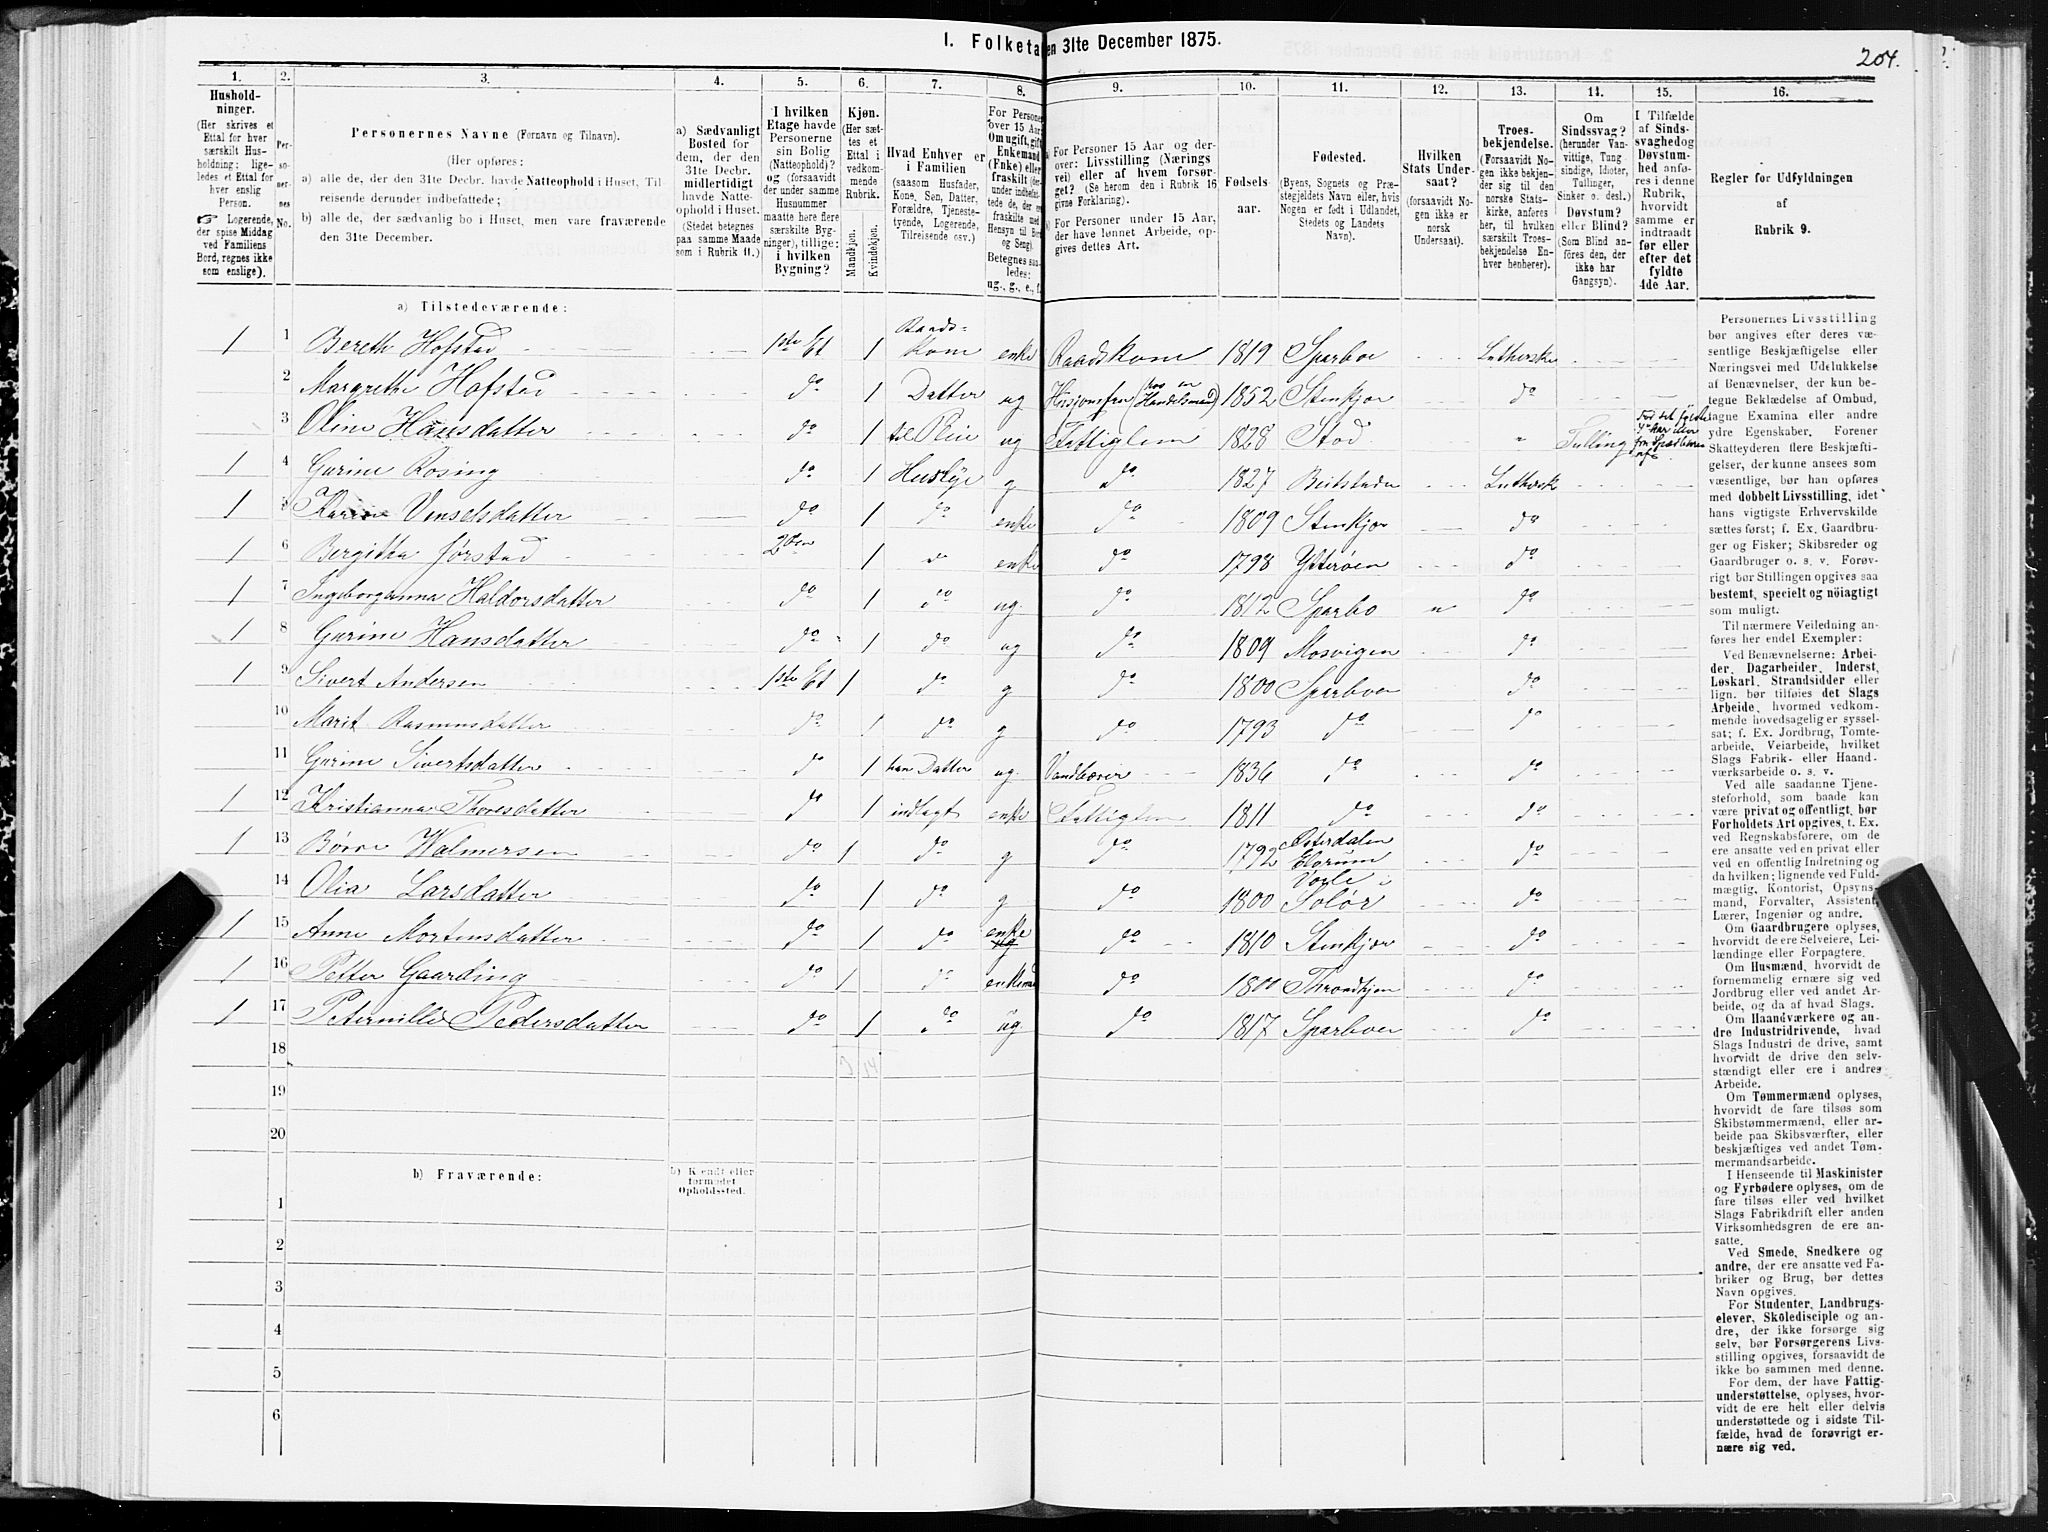 I. Folketa en 31te December 1875.
204.
1. 2. 3. 4. 5. 6. 7. 8. 9. 10. 11. 12. 13. 14. 15. 16.
Hushold-
ninger.
(Her skrives et
Ettal for hver
særskilt Hus-
holdning; lige-
ledes et Ettal for
hver enslig
Person.
☞ Logerende,
der spise Middag
ved Familiens
Bord, regnes ikke
som enslige).
Per-
so-
ner-
nes
No.
Personernes Navne (Fornavn og Tilnavn).
(Her opføres:
a) alle de, der den 31te Decbr. havde Natteophold i Huset, Til-
reisende derunder indbefattede;
b) alle de, der sædvanlig bo i Huset, men vare fraværende
den 31te December.
a) Sædvanligt
Bosted for
dem, der den
31te Decbr.
midlertidigt
havde Natte-
ophold i Huset.
(Stedet betegnes
paa samme Maade
som i Rubrik 11.)
I hvilken
Etage havde
Personerne
sin Bolig
(Natteophold)?
og (forsaavidt
der under samme
Husnummer
maatte høre flere
særskilte Byg-
ninger), tillige:
i hvilken
Bygning?
Kjøn.
(Her sæt-
tes et
Ettal i
vedkom-
mende
Rubrik.
Mandkjøn.
Kvindekjøn.
Hvad Enhver er
i Familien
(saasom Husfader,
Kone, Søn, Datter,
Forældre, Tjeneste-
tyende, Logerende,
Tilreisende osv.)
For Personer
over 15 Aar:
Om ugift, gift
Enkemand
(Enke) eller
fraskilt (der-
under indbefat-
tede de, der ere
fraskilte med
Hensyn til Bord
og Seng).
Betegnes saa-
ledes:
ug., g., e., f.
a) For Personer 15 Aar og der-
over: Livsstilling (Nærings
vei) eller af hvem forsør-
get? (Se herom den i Rubrik 16
givne Forklaring).
b) For Personer under 15 Aar,
der have lønnet Arbeide, op-
gives dettes Art.
Fødsels-
aar.
Fødested.
(Byens, Sognets og Præ-
stegjeldets Navn eller, hvis
Nogen er født i Udlandet,
Stedets og Landets
Navn).
Hvilken
Stats Under-
saat?
(forsaavidt No-
gen ikke er
norsk
Undersaat).
Troes-
bekjendelse.
(Forsaavidt No-
gen ikke bekjen-
der sig til den
norske Stats-
kirke, anføres
her, til hvilken
særskilt Troes-
bekjendelse En-
hver henhører).
Om
Sindssvag?
(herunder Van-
vittige, Tung-
sindige, Idioter,
Tullinger,
Sinker o. desl.)
Døvstum?
eller Blind?
(Som Blind an-
føres den, der
ikke har
Gangsyn).
I Tilfælde
af Sinds-
svaghed og
Døvstum-
hed anfø-
res i denne
Rubrik,
hvorvidt
samme er
indtraadt
før eller
efter det
fyldte
4de Aar.
Regler for Udfyldningen
af
Rubrik 9.
a) Tilstedeværende:
1 1 Bereth Hofstad 1ste Et 1 Raads-
kone enke Raadskone 1819 Sparboe Lutherske
2 Margrethe Hofstad do 1 Datter ug (hos en Handelsmand) 1852 Stenkjær do
1 3 Oline Hansdatter do 1 til Pleie ug Fattiglem 1828 Stod " Tulling
1 4 Gurine Rosing do 1 g do 1827 Beitstaden Luthersk
1 5 Karen Venselsdatter do 1 do enke do 1809 Stenkjær do
1 6 Bergitha Jørstad 2den 1 do enke do 1798 Ytterøen do
1 7 Ingeborganna Haldorsdatter do 1 do ug. do 1812 Sparbo " do
1 8 Gurine Hansdatter do 1 do ug do 1809 Mosvigen do
1 9 Sivert Andersen 1ste Et 1 do g do 1800 Sparboen do
10 Marit Rasmusdatter do 1 do g do 1793 do do
11 Gurine Sivertsdatter do 1 Datter ug. Vandbærer 1836 do do
1 12 Kristianna Thoresdatter do 1 indlagt enke Fattiglem 1811 do do
1 13 Børre Walmersen do 1 do g do 1792 Østerdalen
Elvrum do
14 Olia Larsdatter do 1 do g do 1800 Vaale i
Solør do
1 15 Anne Mortensdatter do 1 do enke do 1810 Stenkjær do
1 16 Petter Gaarding do 1 do enkemd do 1800 Throndhjem do
1 17 Peternille Pedersdatter do 1 do ug do 1817 Sparboen do
18 3 14
19
20
b) Fraværende:
b) Kjendt eller
formodet
Opholdssted.
1
2
3
4
5
6
Personernes Livsstilling
bør angives efter deres væ-
sentlige Beskjæftigelse eller
Næringsvei med Udelukkelse
af Benævnelser, der kun be-
tegne Beklædelse af Ombud,
tagne Examina eller andre
ydre Egenskaber. Forener
Skatteyderen flere Beskjæfti-
gelser, der kunne ansees som
væsentlige, bør han opføres
med dobbelt Livsstilling, idet
hans vigtigste Erhvervskilde
sættes først; f. Ex. Gaardbru-
ger og Fisker; Skibsreder og
Gaardbruger o. s. v. Forøv-
rigt bør Stillingen opgives saa
bestemt, specielt og nöiagtigt
som muligt.
Til nærmere Veiledning an-
føres her endel Exempler:
Ved Benævnelserne: Arbei-
der, Dagarbeider, Inderst,
Løskarl, Strandsidder eller
lign. bør tilføies det Slags
Arbeide, hvormed vedkom-
mende hovedsagelig er syssel-
sat; f. Ex. Jordbrug, Tomte-
arbeide, Veiarbeide, hvilket
Slags Fabrik- eller Haand-
værksarbeide o. s. v.
Ved alle saadanne Tjene-
steforhold, som baade kan
være privat og offentligt, bør
Forholdets Art opgives, t. Ex.
ved Regnskabsførere, om de
ere ansatte ved en privat eller
ved en offentlig Indretning og
da hvilken; lignende ved Fuld-
mægtig, Kontorist, Opsyns-
mand, Forvalter, Assistent,
Lærer, Ingeniør og andre.
Om Gaardbrugere oplyses,
hvorvidt de ere Selveiere, Lei-
lændinge eller Forpagtere.
Om Husmænd, hvorvidt de
fornemmelig ernære sig ved
Jordbrug eller ved andet Ar-
beide, og da af hvad Slags.
Om Haandværkere og an-
dre Industridrivende, hvad
Slags Industri de drive, samt
hvorvidt de drive den selv-
stændigt eller ere i andres
Arbeide.
Om Tømmermænd oplyses,
hvorvidt de fare tilsøs som
Skibstømmermænd, eller ar-
beide paa Skibsværfter, eller
beskjæftiges ved andet Tøm-
mermandsarbeide.
I Henseende til Maskinister
og Fyrbødere oplyses, om de
fare tilsøs eller ved hvilket
Slags Fabrikdrift eller anden
Virksomhedsgren de ere an-
satte.
Ved Smede, Snedkere og
andre, der ere ansatte ved Fa-
briker og Brug, bør dettes
Navn opgives.
For Studenter, Landbrugs-
elever, Skôledisciple og an-
dre, der ikke forsørge sig
selv, bør Forsørgerens Livs-
stilling opgives, forsaavidt de
ikke bo sammen med denne.
For dem, der have Fattig-
understøttelse, oplyses, hvor-
vidt de ere helt eller delvis
understøttede og i sidste Til-
fælde, hvad de forøvrigt er-
nære sig ved.